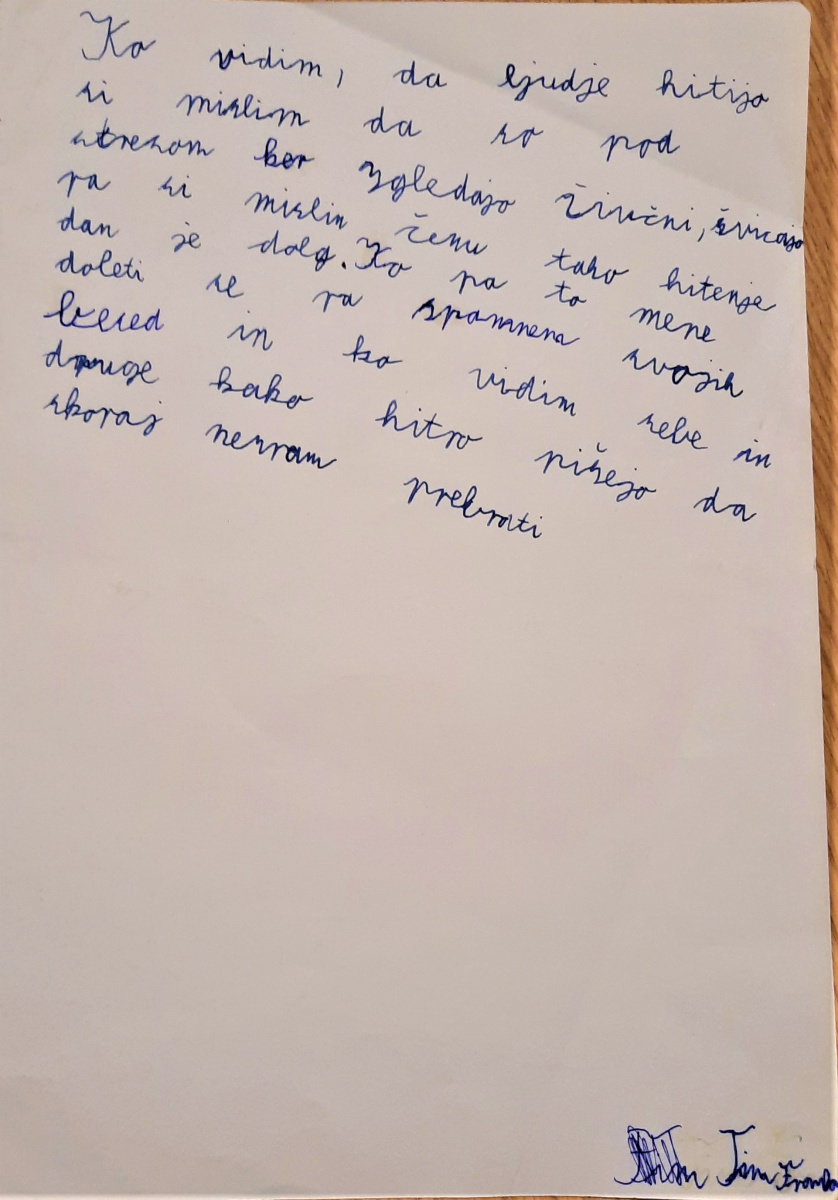 Ko vidim, da ljudje hitijo
si mislim da so pod
stresom ker zgledajo živčni, švicajo
pa si mislin čemu tako hitenje
dan je dolg. Ko pa to mene
doleti se pa spomnem svojih
besed in ko vidim sebe in
druge kako hitro pišejo da
skoraj nesram prebrati